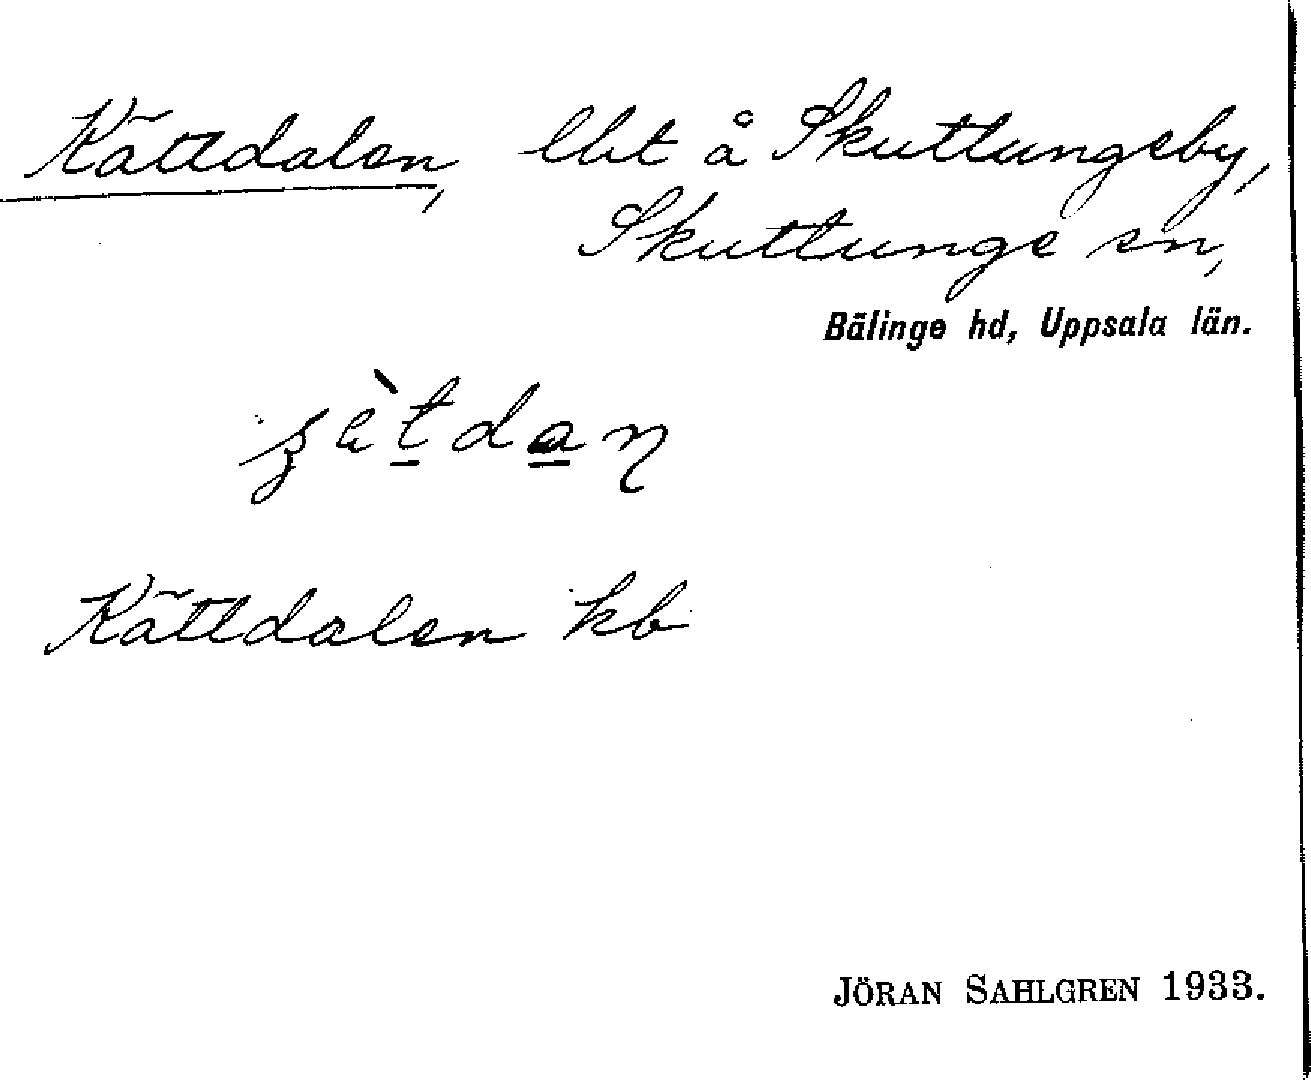 Kättdalen, lht å Skuttungeby,
Skuttunge sn,
Bälinge hd, Uppsala län.
Kättdalen kb
JÖRAN SAHLGREN 1933.